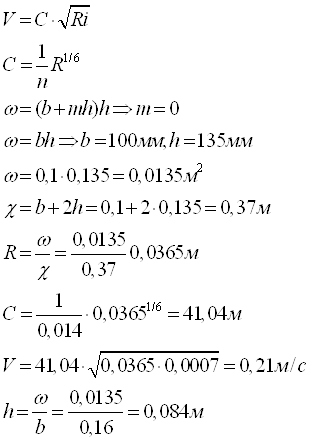 V = C · √Ri
C = 1/n R^1/6
ω = (b + mh)h ⇒ m = 0
ω = bh ⇒ b = 100мм, h = 135мм
ω = 0,1 · 0,135 = 0,0135м²
χ = b + 2h = 0,1 + 2 · 0,135 = 0,37м
R = ω/χ = 0,0135/0,37 0,0365м
C = 1/0,014 · 0,0365^1/6 = 41,04м
V = 41,04 · √0,0365 · 0,0007 = 0,21м/с
h = ω/b = 0,0135/0,16 = 0,084м